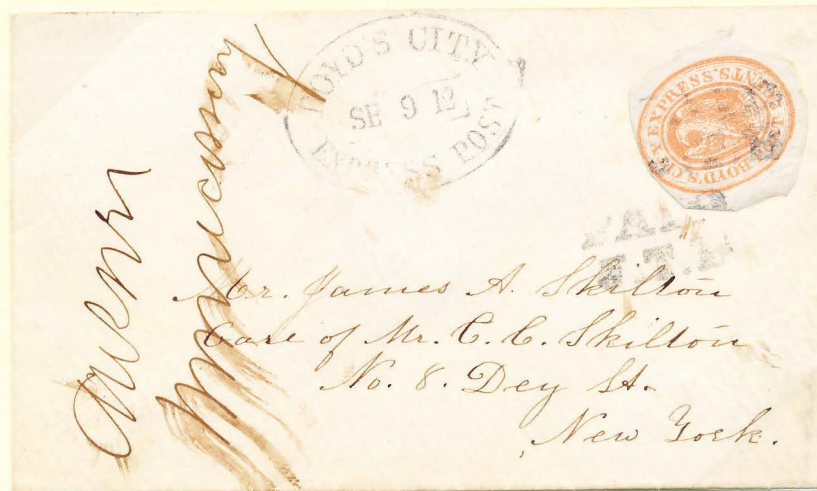 BOYD'S CITY
SE 9 12
EXPRESS POST
BOYD'S CITY EXPRESS POST
PAID
J.T.B.
Mr. James A. Skilton
Care of Mr. C. C. Skilton
No. 8. Dey St.
New York.